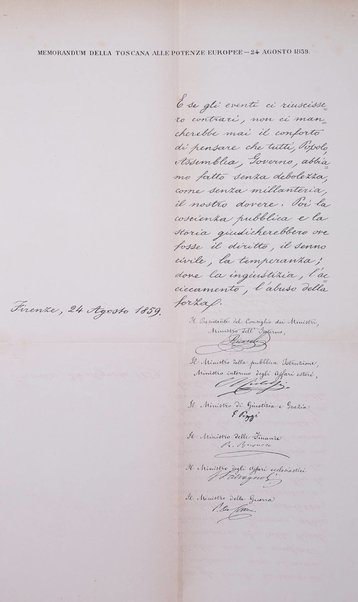 MEMORANDUM DELLA TOSCANA ALLE POTENZE EUROPEE — 24 AGOSTO 1859.
E se gli eventi ci riuscisse=
ro contrari, non ci man=
cherebbe mai il conforto
di pensare che tutti, Popolo,
Assemblea, Governo, abbia=
mo fatto senza debolezza,
come senza millanteria,
il nostro dovere. Poi la
coscienza pubblica e la
storia giudicherebbero ove
fosse il diritto, il senno
civile, la temperanza;
dove la ingiustizia, l'ac=
ciecamento, l'abuso della
forza.
Firenze, 24 Agosto 1859.
Il Presidente del Consiglio dei Ministri,
Ministro dell' Interno.
Il Ministro della pubblica Istruzione
Ministro interino degli Affari esteri.
Il Ministro di Giustizia e Grazia
E. Poggi
Il Ministro delle Finanze
R. Busacca
Il Ministro degli Affari ecclesiastici
V. Salvagnoli
Il Ministro della Guerra